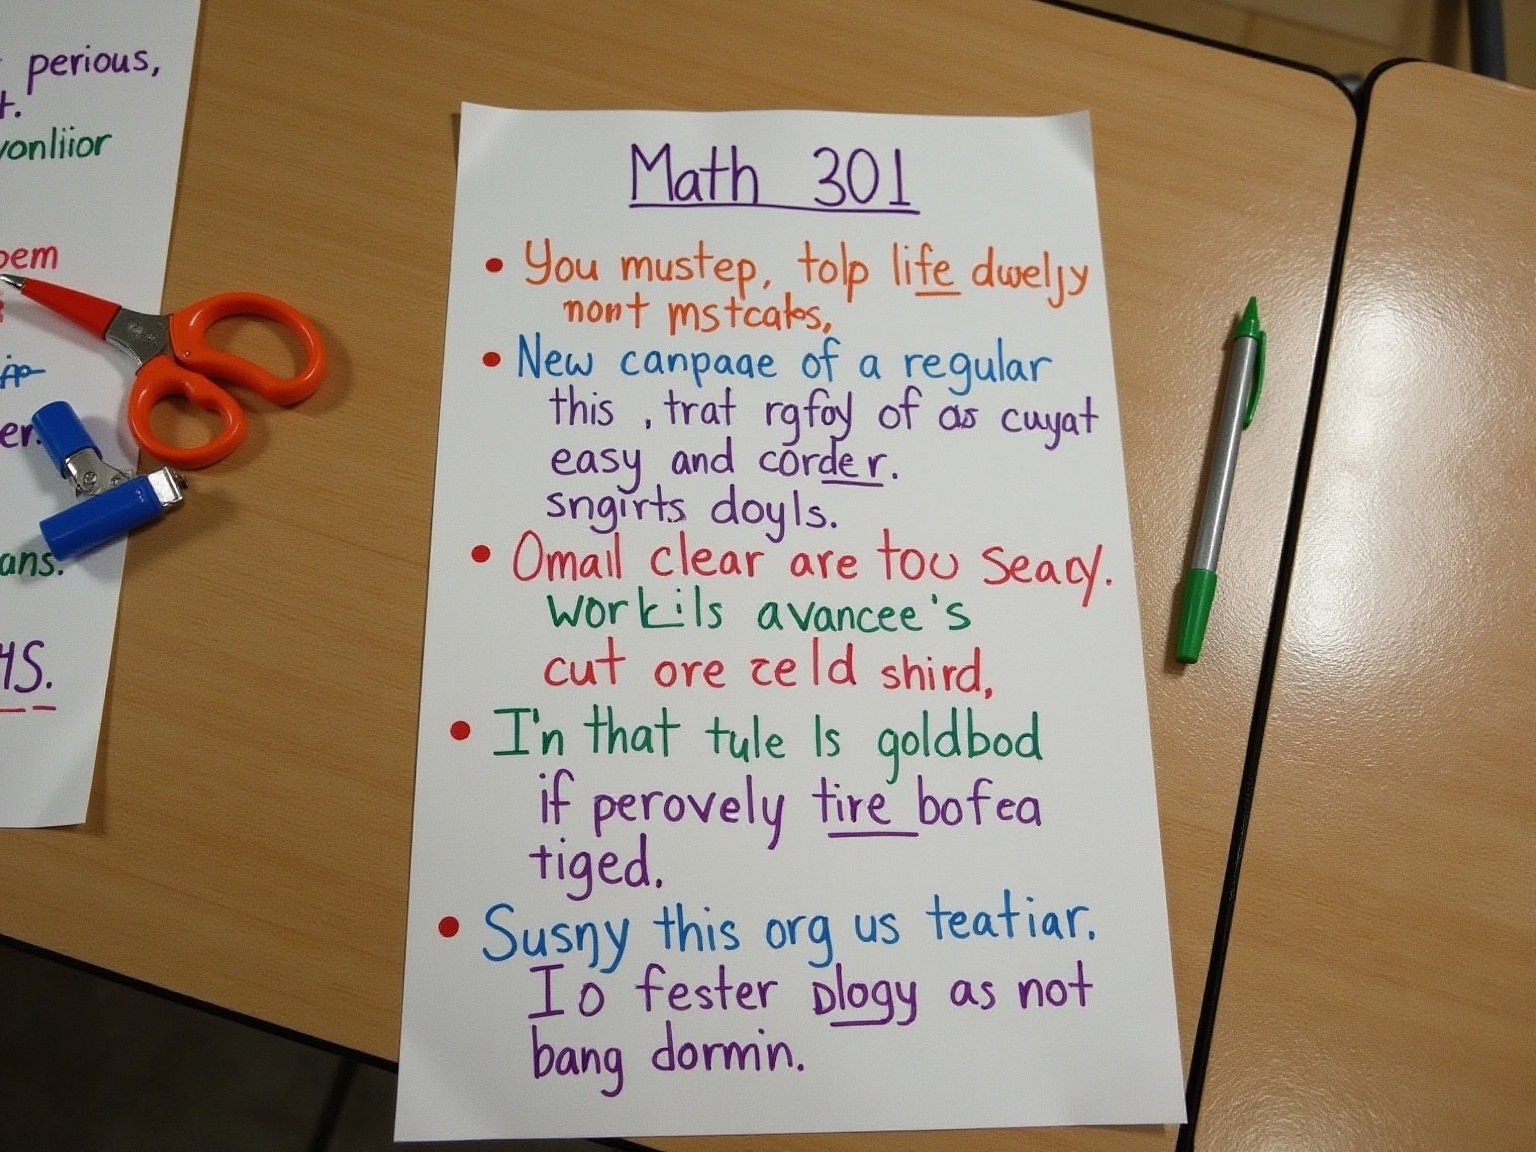 perious,
t.
vonliior
oem
er.
ans.
HS.
Math 301
• You mustep, tolp life dweljy
nont mstcakes,
• New canpaae of a regular
this , trat rgfoy of as cuyat
easy and corder.
sngirts doyls.
• Omail clear are tou Seacy.
workils avancee's
cut ore zeld shird,
• I'n that tule Is goldbod
if perovely tire bofea
tiged.
• Susny this org us teatiar.
Io fester ology as not
bang dormin.